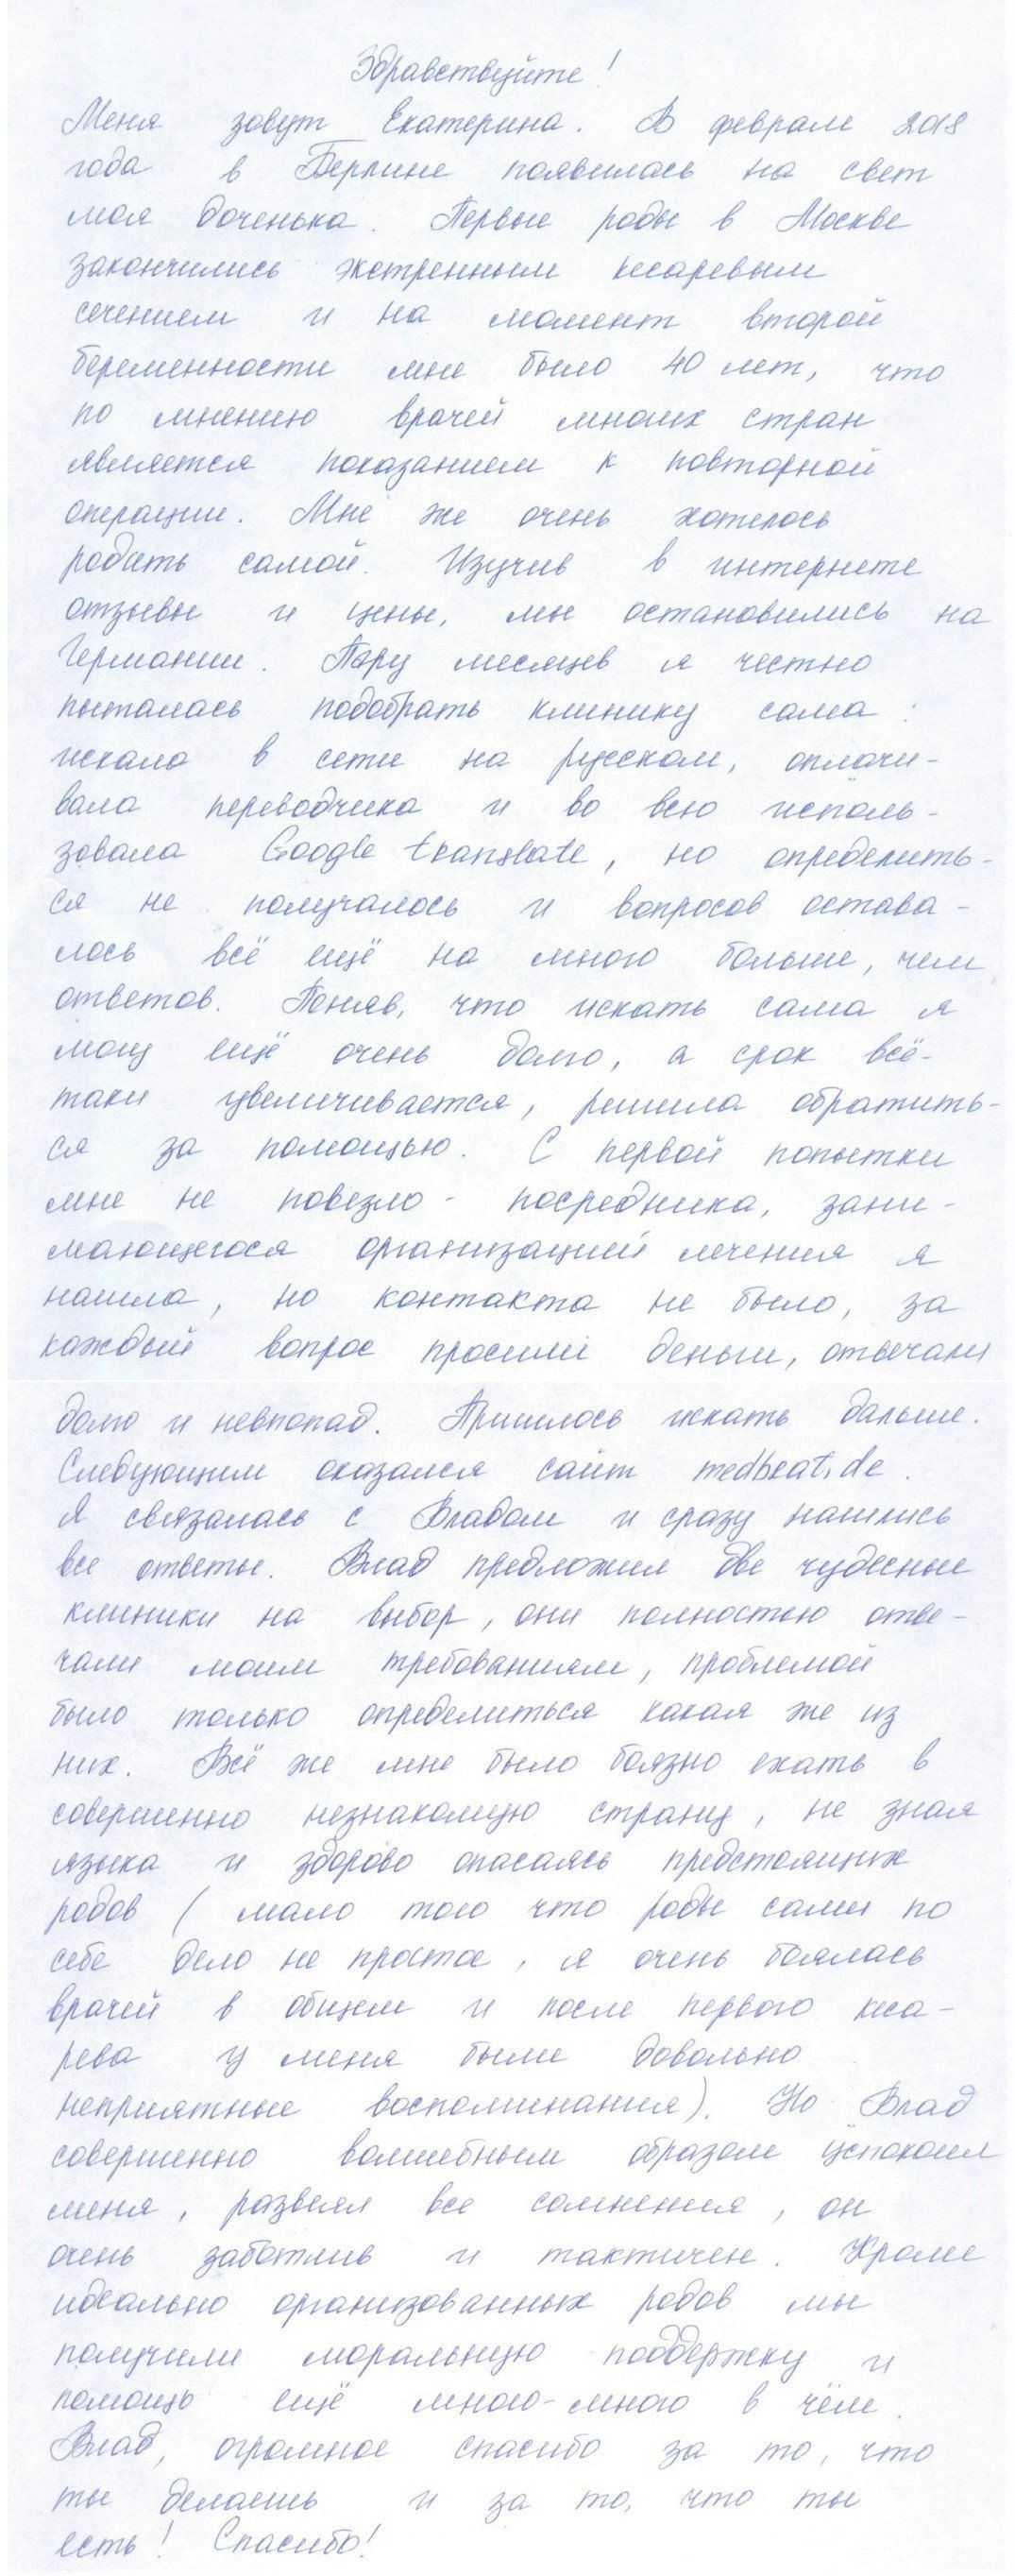 Здравствуйте!
Меня зовут Екатерина. В феврале 2018
года в Берлине появилась на свет
моя доченька. Первые роды в Москве
закончились экстренным кесаревым
сечением и на момент второй
беременности мне было 40 лет, что
по мнению врачей многих стран
является показанием к повторной
операции. Мне же очень хотелось
родить самой. Изучив в интернете
отзывы и цены, мы остановились на
Германии. Пару месяцев я честно
пыталась подобрать клинику сама:
искала в сети на русском, оплачи-
вала переводчика и во всю исполь-
зовала Google translate, но определить-
ся не получалось и вопросов остава-
лось всё ещё на много больше, чем
ответов. Поняв, что искать сама я
могу ещё очень долго, а срок всё-
таки увеличивается, решила обратить-
ся за помощью. С первой попытки
мне не повезло - посредника, зани-
мающегося организацией лечения я
нашла, но контакта не было, за
каждый вопрос просили деньги, отвечали
долго и невпопад. Пришлось искать дальше.
Следующим оказался сайт medbeat.de.
Я связалась с Владом и сразу нашлись
все ответы. Влад предложил две чудесные
клиники на выбор, они полностью отве-
чали моим требованиям, проблемой
было только определиться какая же из
них. Всё же мне было боязно ехать в
совершенно незнакомую страну, не зная
языка и здорово опасаясь предстоящих
родов (мало того что роды сами по
себе дело не простое, я очень боялась
врачей в общем и после первого кеса-
рева у меня были довольно
неприятные воспоминания). Но Влад
совершенно волшебным образом успокоил
меня, развеял все сомнения, он
очень заботлив и тактичен. Кроме
идеально организованных родов мы
получили моральную поддержку и
помощь ещё много-много в чём.
Влад, огромное спасибо за то, что
ты делаешь и за то, что ты
есть! Спасибо!